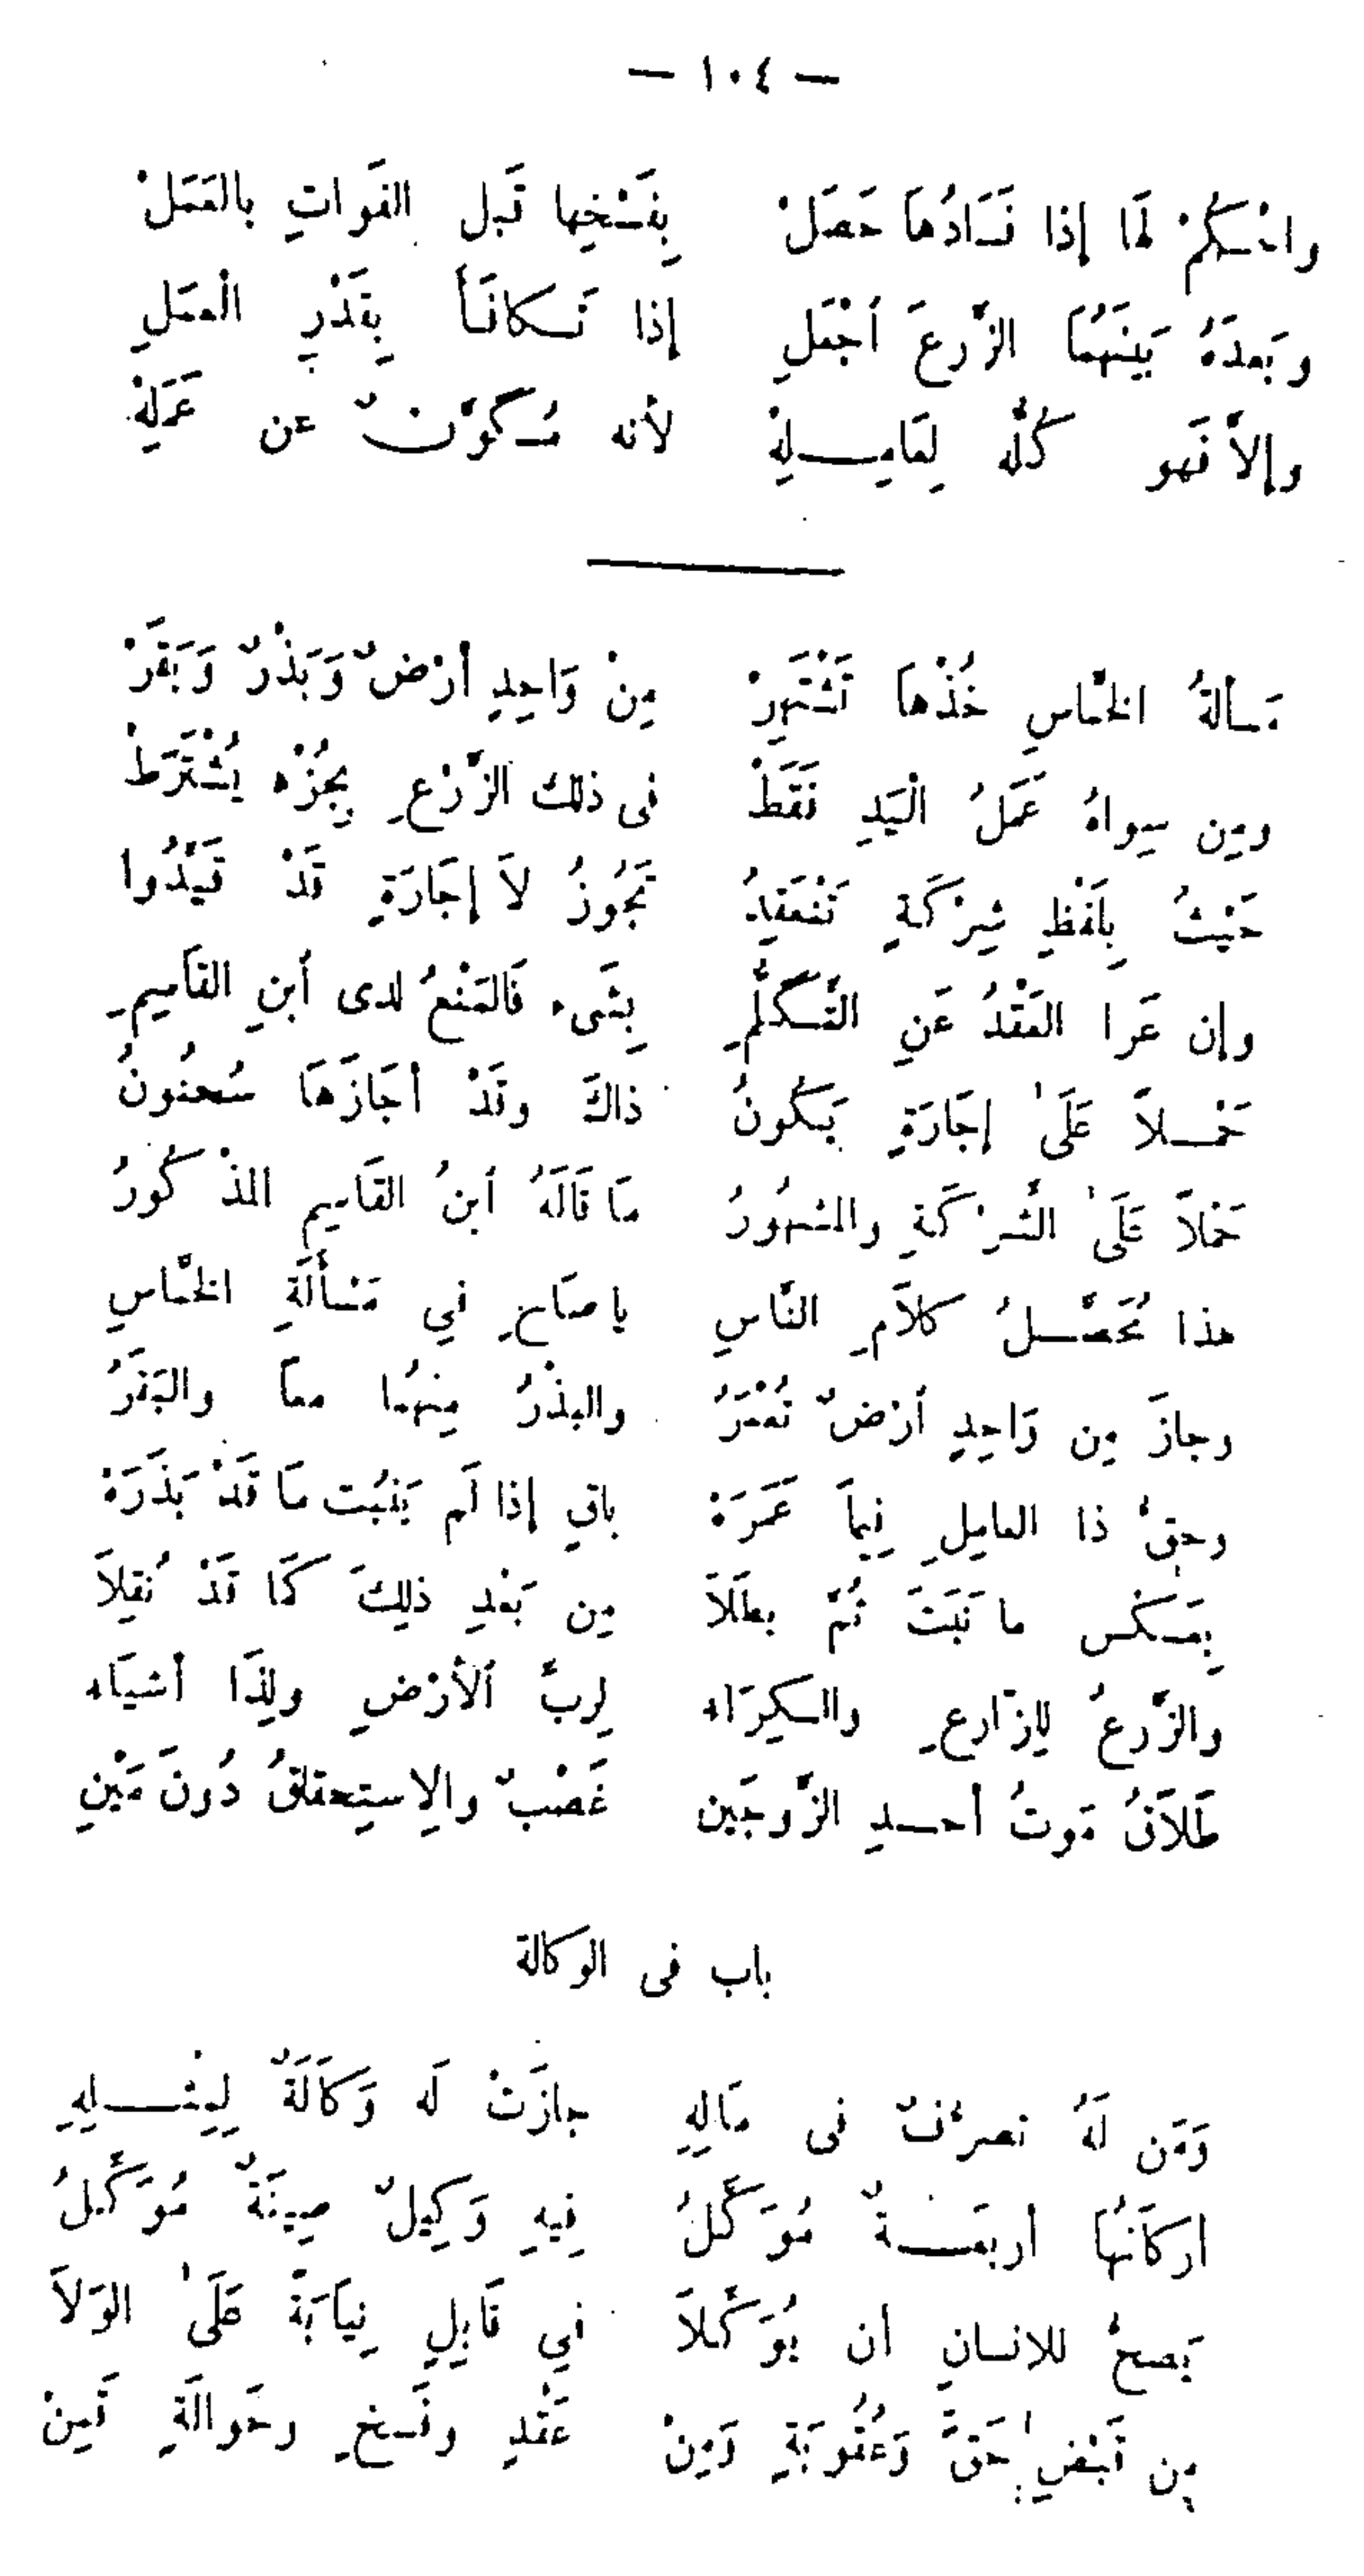 — ١٠٤ —
واحْكُمْ لَهَا إذا فَسَادُهَا حَصَلْ بِفَسْخِها قَبل الفَواتِ بالعَمَلْ
وبَعدَهُ بَينَهُمَا الزَّرعَ أجْعَلِ إذا تَكافَأَ بِقَدْرِ الْعمَلِ
وإلاَّ فَهو كُلُّه لِعَامِلِهْ لأنه مُكَوَّنٌ عن عَمَلِهْ
مَسألةُ الخَمَّاسِ خُذْهَا تَشْتَهِرْ مِنْ وَاحِدٍ أرْضٌ وَبَذْرٌ وَبَقَرْ
ومِن سِواهُ عَمَلُ الْيَدِ فَقَطْ فى ذلك الزَّرْعِ بِجُزْء يُشْتَرَطْ
حَيْثُ بِلَفْظِ شِرْكَةٍ تَنْعَقِدُ تَجُوزُ لاَ إجَارَةٍ قَدْ قَيَّدُوا
وإن عَرا العَقْدُ عَنِ التَّكَلُّمِ بِشَىء فَالمَنْعُ لدى أبنِ القاَسِمِ
حَمْلاً عَلَىٰ إجَارَةٍ يَكُونُ ذاكَ وقَدْ أجَازَهَا سُحنُونُ
حَمْلاً عَلَىٰ الشَّرْكَةِ والمشهُورُ مَا قَالَهُ أبنُ القَاسِمِ المذْكُورُ
هذا مُحَصَّلُ كلاَمِ النَّاسِ يا صَاحِ فِي مَسْأَلَةِ الخَمَّاسِ
وجازَ مِن وَاحِدٍ أرْضٌ تُعْمَرُ والبذْرُ مِنهُما معاً والبَقَرُ
وحقُّ ذا العامِلِ فِيمَا عَمَرَهْ باقٍ إذا لَم يَنبُت مَا قَدْ بَذَرَهْ
بِعَكْسِ ما نَبَتَ ثُمَّ بطَلاَ مِن بَعْدِ ذلِكَ كَمَا قَدْ نُقِلاَ
والزَّرعُ لِلزّارعِ والكِرَاء لِربِّ ألأرْضِ ولِذَا أشيَاء
طَلاَقُ مَوتُ أحدِ الزَّوجَين غَصْبٌ والِاستِحقاقُ دُونَ مَيْنِ
باب فى الوكالة
وَمَن لَهُ تصرُّفٌ فى مَالِهِ جازَتْ لَه وَكَالَةٌ لِمِثْلِهِ
أركَانُهَا أربعَةٌ مُوَكِّلُ فِيهِ وَكِيلٌ صِيغَةٌ مُوَكِّلُ
يَصحُّ للانسانِ أن يُوَكِّلاَ فِي قَابِلٍ نِيَابَةً عَلَىٰ الوَلاَ
مِن قَبْضِ حَقٍّ وَعُقُوبَةٍ وَمِنْ عَقْدٍ وفَسخٍ وحَوالَةٍ قَمِنْ